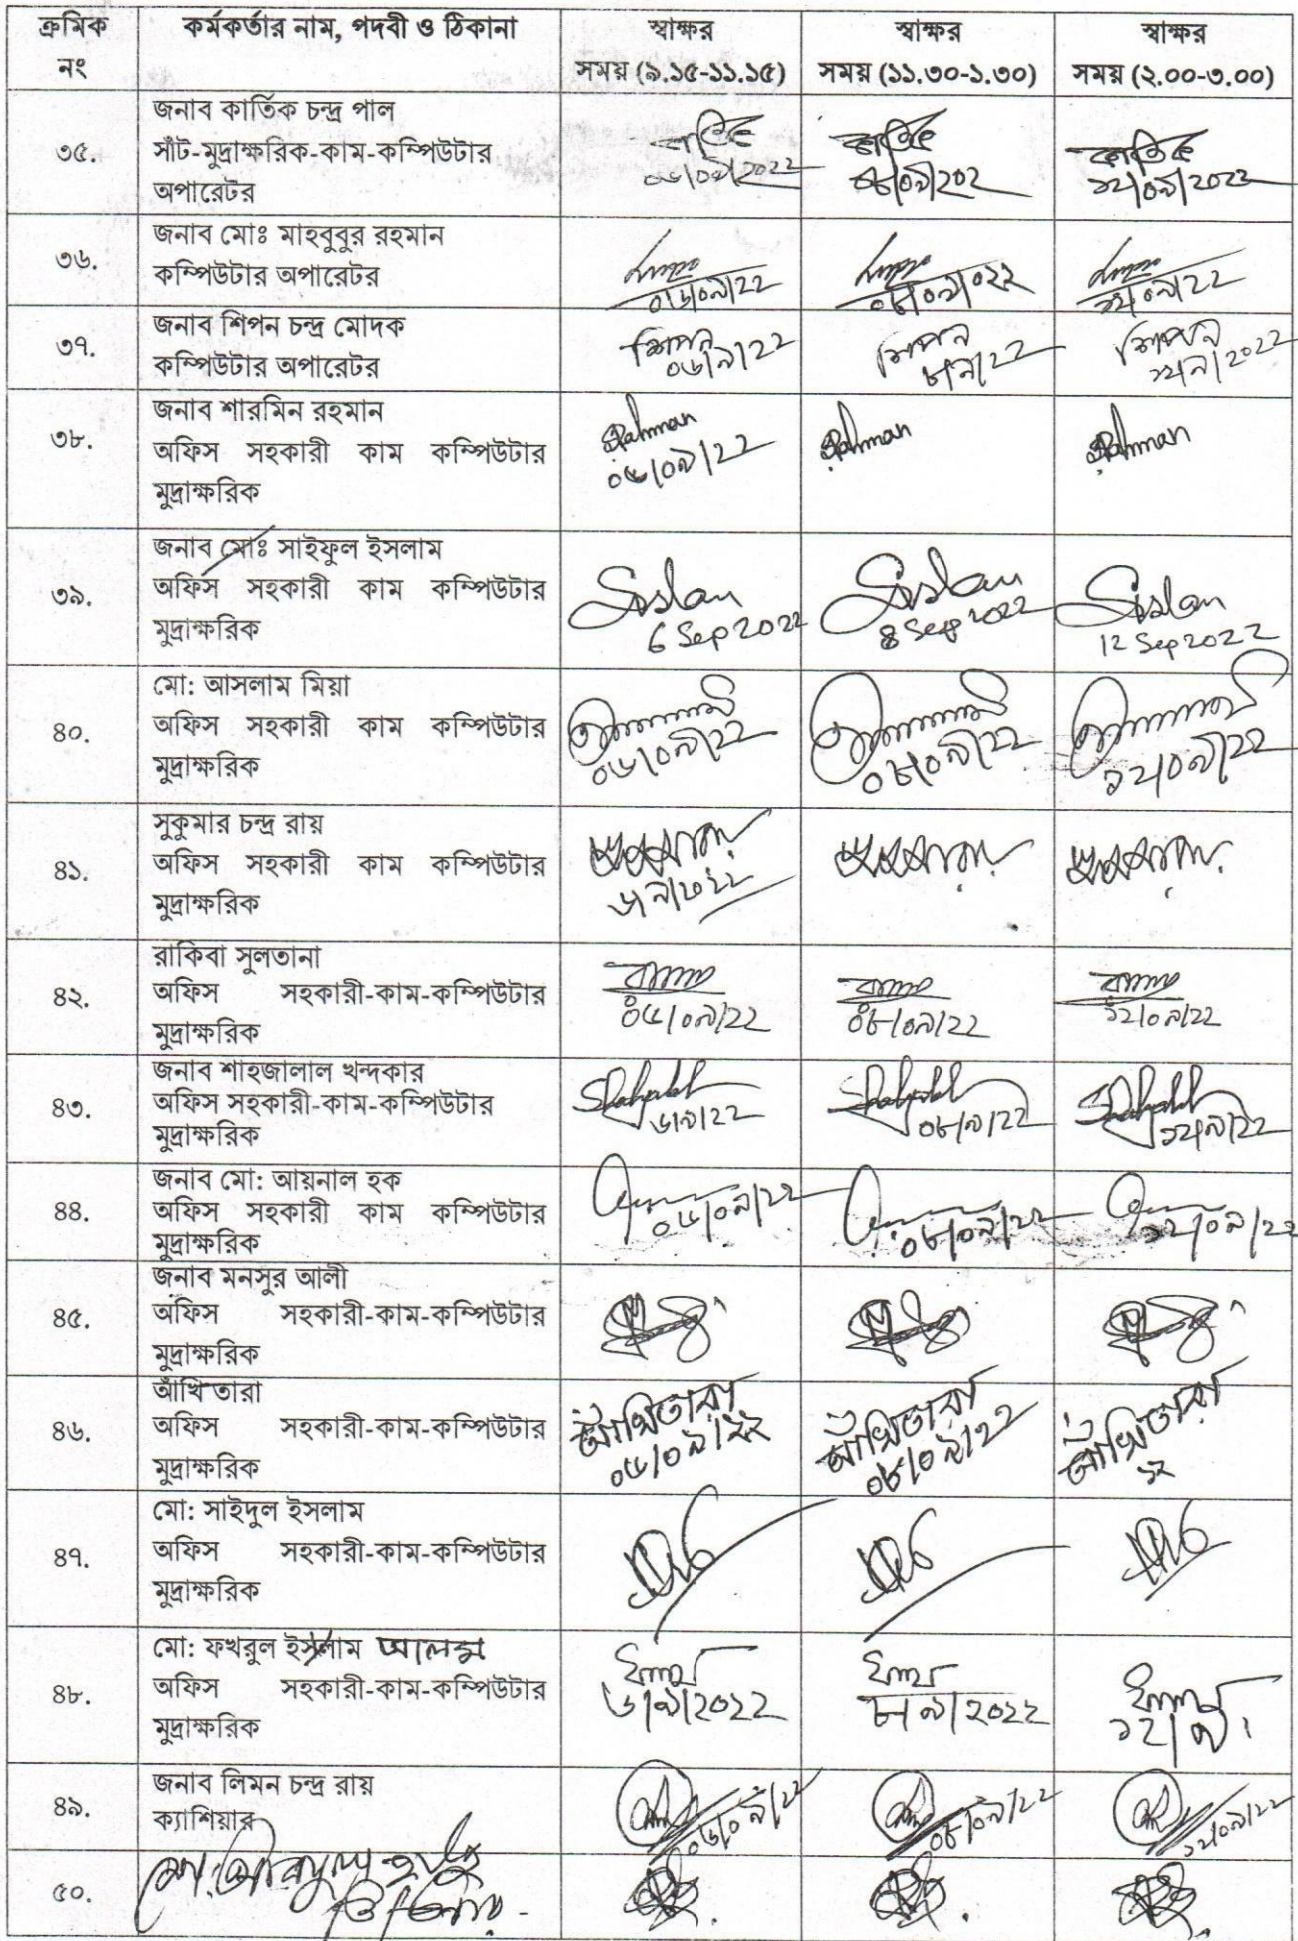 ক্রমিক নং কর্মকর্তার নাম, পদবী ও ঠিকানা স্বাক্ষর সময় (৯.১৫-১১.১৫) স্বাক্ষর সময় (১১.৩০-১.৩০) স্বাক্ষর সময় (২.০০-৩.০০)
৩৫. জনাব কার্তিক চন্দ্র পাল
সাঁট-মুদ্রাক্ষরিক-কাম-কম্পিউটার
অপারেটর
কার্তিক কার্তিক কার্তিক
০৬/০৯/২০২২ ০৮/০৯/২০২ ১২/০৯/২০২২
৩৬. জনাব মোঃ মাহবুবুর রহমান
কম্পিউটার অপারেটর
০৬/০৯/২২ ০৮/০৯/০২২ ১২/০৯/২২
৩৭. জনাব শিপন চন্দ্র মোদক
কম্পিউটার অপারেটর
শিপন শিপন শিপন
০৬/৯/২২ ৮/৯/২২ ১২/৯/২০২২
৩৮. জনাব শারমিন রহমান
অফিস সহকারী কাম কম্পিউটার
মুদ্রাক্ষরিক
Rahman Rahman Rahman
০৬/০৯/২২
৩৯. জনাব মোঃ সাইফুল ইসলাম
অফিস সহকারী কাম কম্পিউটার
মুদ্রাক্ষরিক
6 Sep 2022 8 Sep 2022 12 Sep 2022
৪০. মো: আসলাম মিয়া
অফিস সহকারী কাম কম্পিউটার
মুদ্রাক্ষরিক
০৬/০৯/২২ ০৮/০৯/২২ ১২/০৯/২২
৪১. সুকুমার চন্দ্র রায়
অফিস সহকারী কাম কম্পিউটার
মুদ্রাক্ষরিক
৬/৯/২০২২
৪২. রাকিবা সুলতানা
অফিস সহকারী-কাম-কম্পিউটার
মুদ্রাক্ষরিক
০৬/০৯/২২ ০৮/০৯/২২ ১২/০৯/২২
৪৩. জনাব শাহজালাল খন্দকার
অফিস সহকারী-কাম-কম্পিউটার
মুদ্রাক্ষরিক
৬/৯/২২ ০৮/৯/২২ ১২/৯/২২
৪৪. জনাব মো: আয়নাল হক
অফিস সহকারী কাম কম্পিউটার
মুদ্রাক্ষরিক
০৬/০৯/২২ ০৮/০৯/২২ ১২/০৯/২২
৪৫. জনাব মনসুর আলী
অফিস সহকারী-কাম-কম্পিউটার
মুদ্রাক্ষরিক
৪৬. আঁখি তারা
অফিস সহকারী-কাম-কম্পিউটার
মুদ্রাক্ষরিক
আঁখিতারা আঁখিতারা আঁখিতারা
০৬/০৯/২২ ০৮/০৯/২২ ১২
৪৭. মো: সাইদুল ইসলাম
অফিস সহকারী-কাম-কম্পিউটার
মুদ্রাক্ষরিক
৪৮. মো: ফখরুল ইসলাম আলম
অফিস সহকারী-কাম-কম্পিউটার
মুদ্রাক্ষরিক
৬/৯/২০২২ ৮/৯/২০২২ ১২/৯/
৪৯. জনাব লিমন চন্দ্র রায়
ক্যাশিয়ার
০৬/০৯/২২ ০৮/০৯/২২ ১২/০৯/২২
৫০.